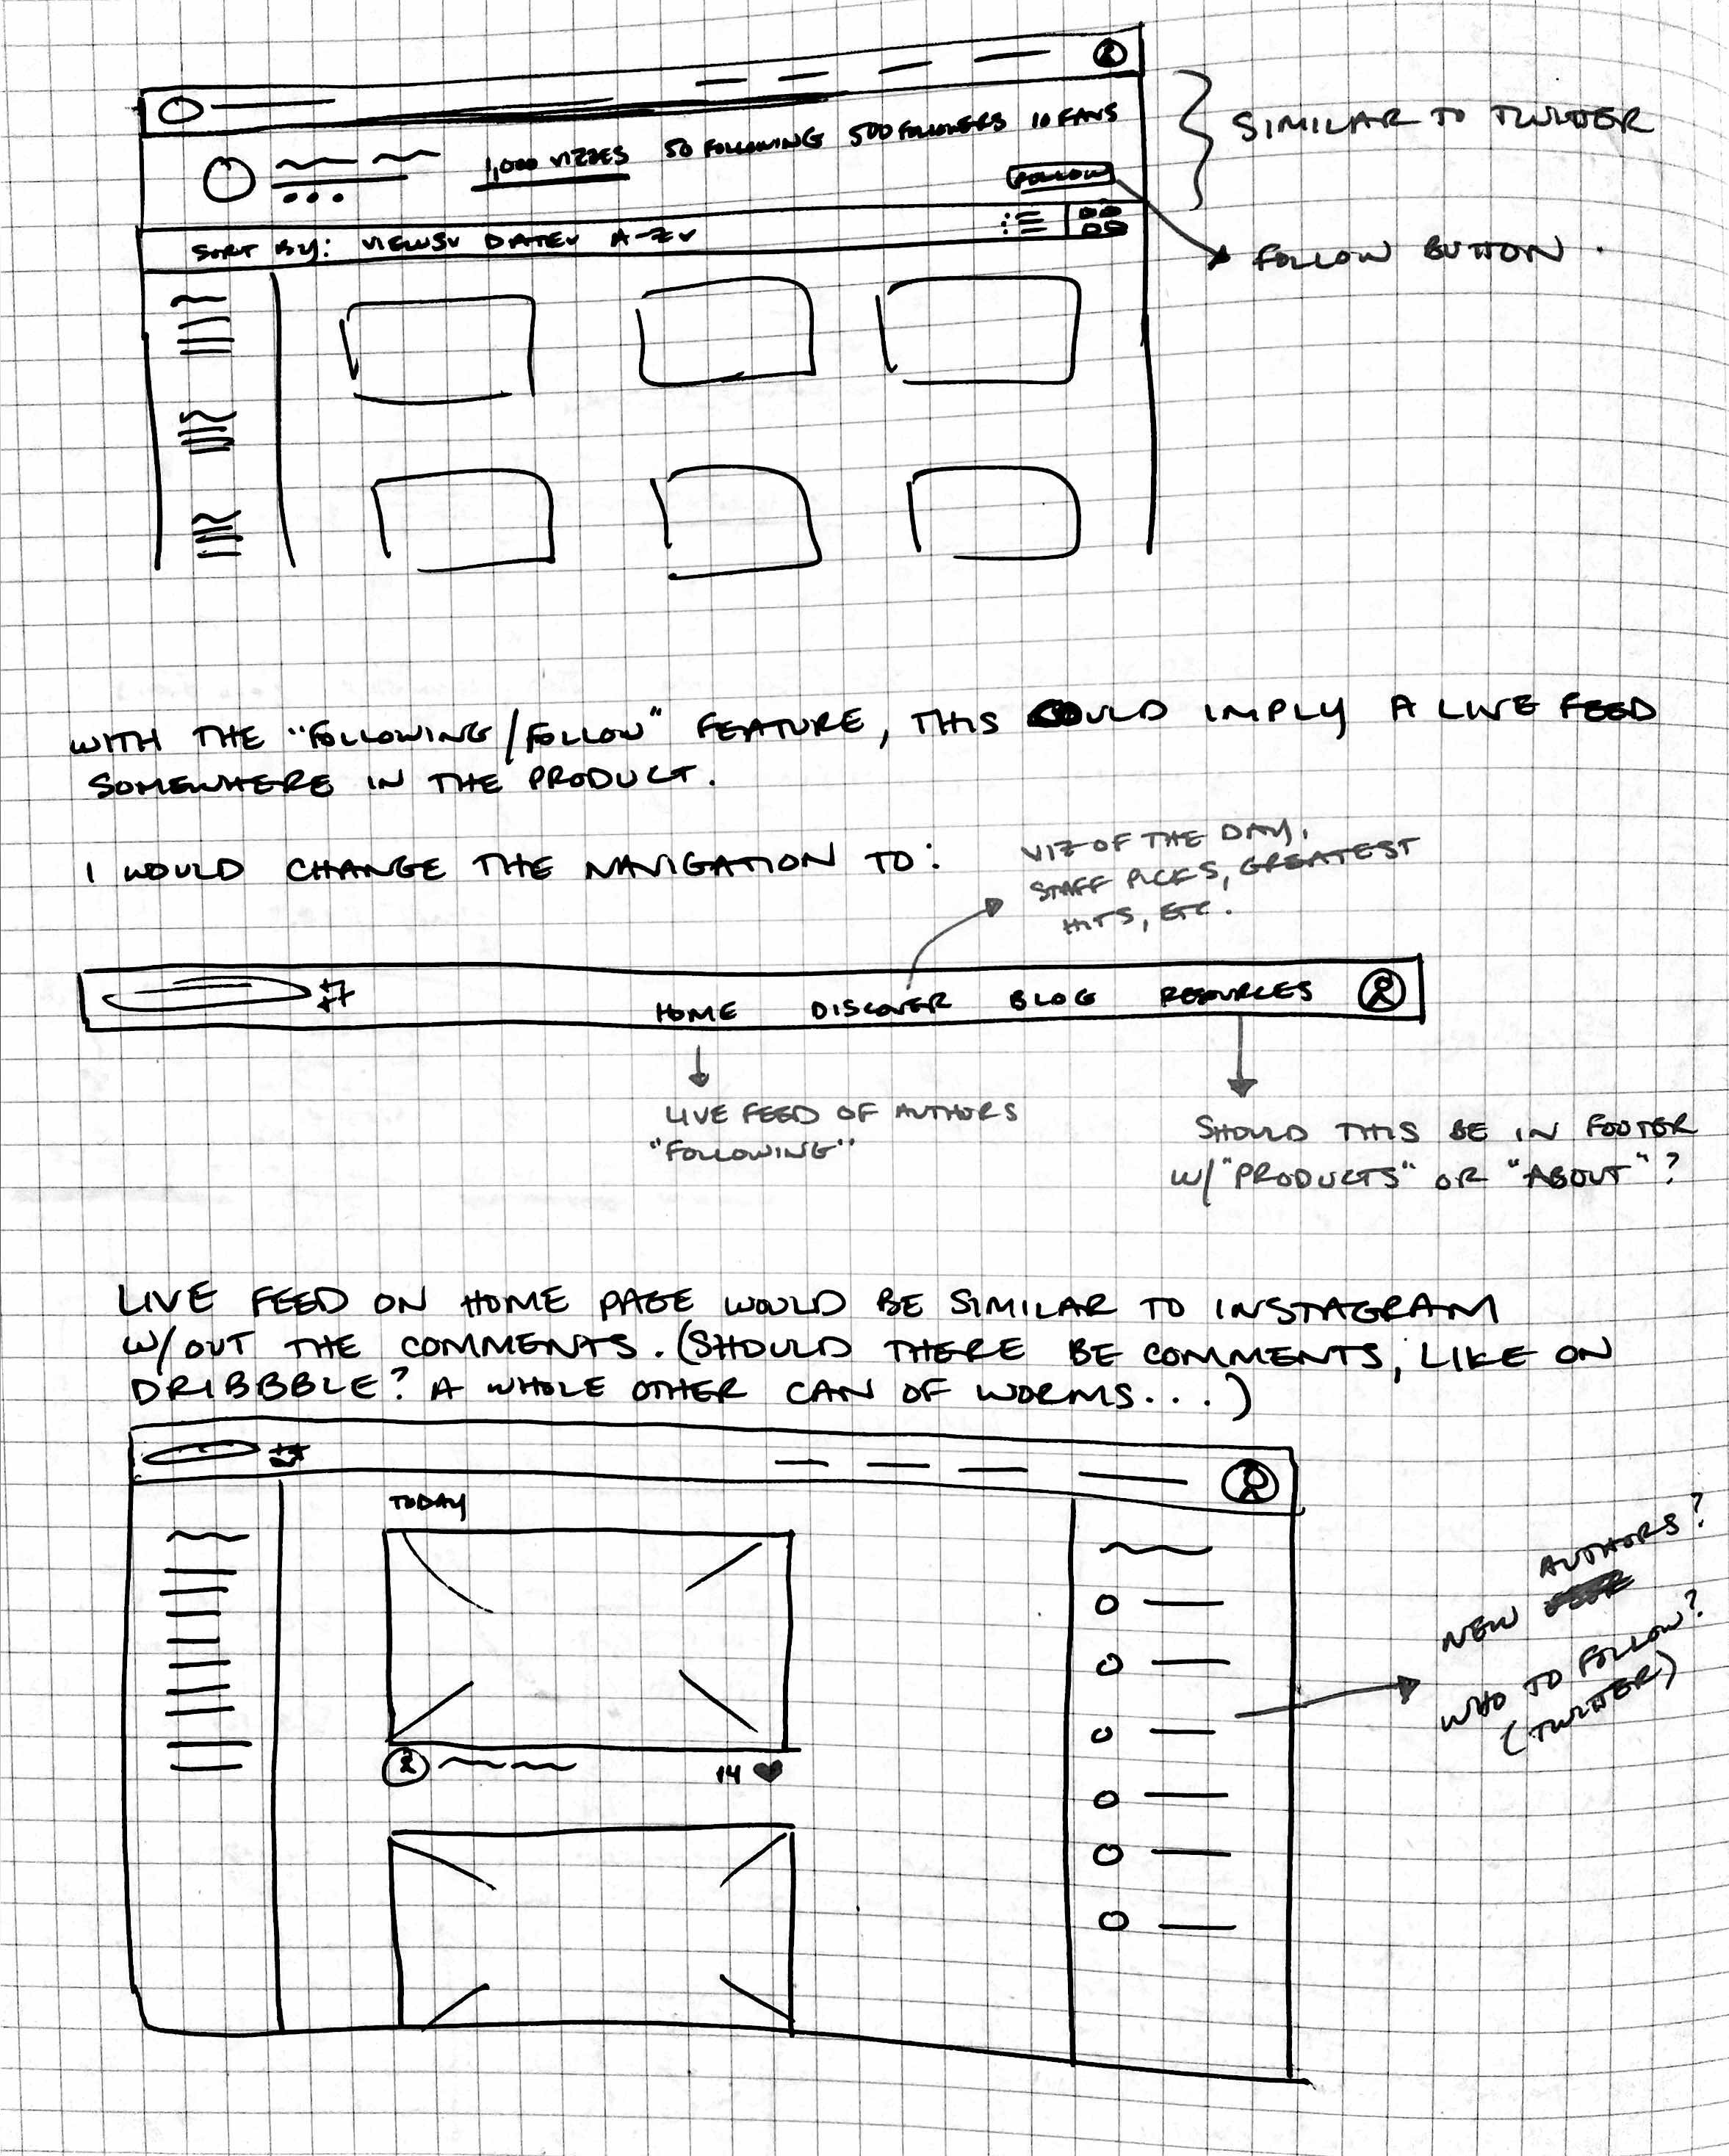 1,000 VIZZES 50 FOLLOWING 500 FOLLOWERS 10 FANS
FOLLOW
SIMILAR TO TWITTER
SORT BY: VIEWS DATE A-Z
FOLLOW BUTTON.
WITH THE "FOLLOWING/FOLLOW" FEATURE, THIS COULD IMPLY A LIVE FEED
SOMEWHERE IN THE PRODUCT.
I WOULD CHANGE THE NAVIGATION TO:
VIZ OF THE DAY,
STAFF PICKS, GREATEST
HITS, ETC.
HOME DISCOVER BLOG RESOURCES
LIVE FEED OF AUTHORS
"FOLLOWING"
SHOULD THIS BE IN FOOTER
W/ "PRODUCTS" OR "ABOUT"?
LIVE FEED ON HOME PAGE WOULD BE SIMILAR TO INSTAGRAM
W/OUT THE COMMENTS. (SHOULD THERE BE COMMENTS, LIKE ON
DRIBBBLE? A WHOLE OTHER CAN OF WORMS...)
TODAY
14
NEW AUTHORS?
WHO TO FOLLOW?
(TWITTER)